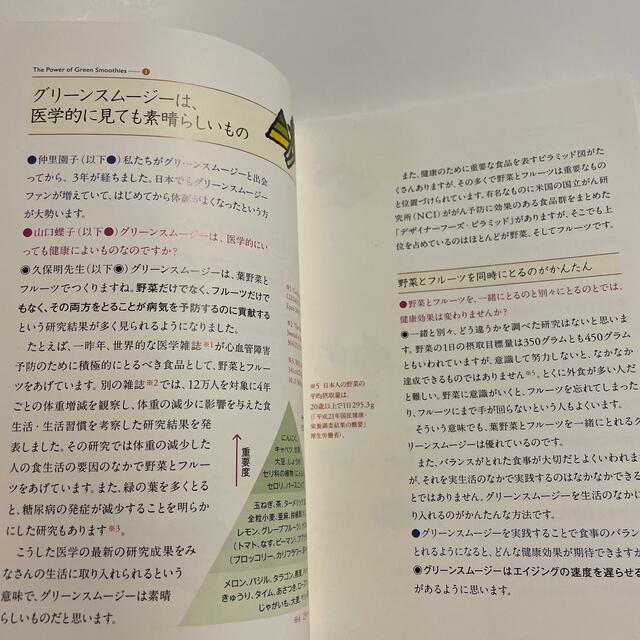 The Power of Green Smoothies — 1
グリーンスムージーは、
医学的に見ても素晴らしいもの
●仲里園子(以下●)私たちがグリーンスムージーと出会
ってから、3年が経ちました。日本でもグリーンスムージー
ファンが増えていて、はじめてから体調がよくなったという方
が大勢います。
●山口蝶子(以下●)グリーンスムージーは、医学的にい
っても健康によいものなのですか?
◉久保明先生(以下◉)グリーンスムージーは、葉野菜と
フルーツでつくりますね。野菜だけでなく、フルーツだけで
もなく、その両方をとることが病気を予防するのに貢献する
という研究結果が多く見られるようになりました。
たとえば、一昨年、世界的な医学雑誌※1が心血管障害
予防のために積極的にとるべき食品として、野菜とフルー
ツをあげています。別の雑誌※2では、12万人を対象に4年
ごとの体重増減を観察し、体重の減少に影響を与えた食
生活・生活習慣を考察した研究結果を発
表しました。その研究では体重の減少した
人の食生活の要因のなかで野菜とフルー
ツをあげています。また、緑の葉を多くとる
と、糖尿病の発症が減少することを明らか
にした研究もあります※3。
こうした医学の最新の研究成果をみ
なさんの生活に取り入れられるという
意味で、グリーンスムージーは素晴
らしいものだと思います。
重要度
にんにく、
キャベツ、
大豆、しょうが
セリ科の植物(にんじん
セロリ、パースニップ
玉ねぎ、茶、ターメリック
全粒小麦、亜麻、
レモン、グレープフルーツ
(トマト、なす、ピーマン
(ブロッコリー、カリフラワー
メロン、バジル、タラゴン、
きゅうり、タイム、あさつき、
じゃがいも、大麦、
※4
また、健康のために重要な食品を表すピラミッド図がた
くさんありますが、その多くで野菜とフルーツは重要なもの
と位置づけられています。有名なものに米国の国立がん研
究所(NCI)ががん予防に効果のある食品群をまとめた
「デザイナーフーズ・ピラミッド」がありますが、そこでも上
位を占めているのはほとんどが野菜、そしてフルーツです。
野菜とフルーツを同時にとるのがかんたん
●野菜とフルーツを、一緒にとるのと別々にとるのとでは、
健康効果は変わりませんか?
◉一緒と別々、どう違うかを調べた研究はないと思いま
す。野菜の1日の摂取目標量は350グラムとも450グラム
ともいわれていますが、意識して努力しないと、なかなか
達成できるものではありません※5。とくに外食が多い人だ
と難しい。野菜に意識がいくと、フルーツを忘れてしまった
り、フルーツにまで手が回らないという人もよくいます。
そういう意味でも、葉野菜とフルーツを一緒にとれるグ
リーンスムージーは優れているのです。
また、バランスがとれた食事が大切だとよくいわれます
が、それを実生活のなかで実践するのはなかなかできる
とではありません。グリーンスムージーを生活のなかに
り入れるのがかんたんな方法です。
●グリーンスムージーを実践することで食事のバラン
とれるようになると、どんな健康効果が期待できますか
◉グリーンスムージーはエイジングの速度を遅らせる
があるように思います。
※5 日本人の野菜の
平均摂取量は、
20歳以上で1日295.3g
(「平成21年国民健康・
栄養調査結果の概要」
厚生労働省)。